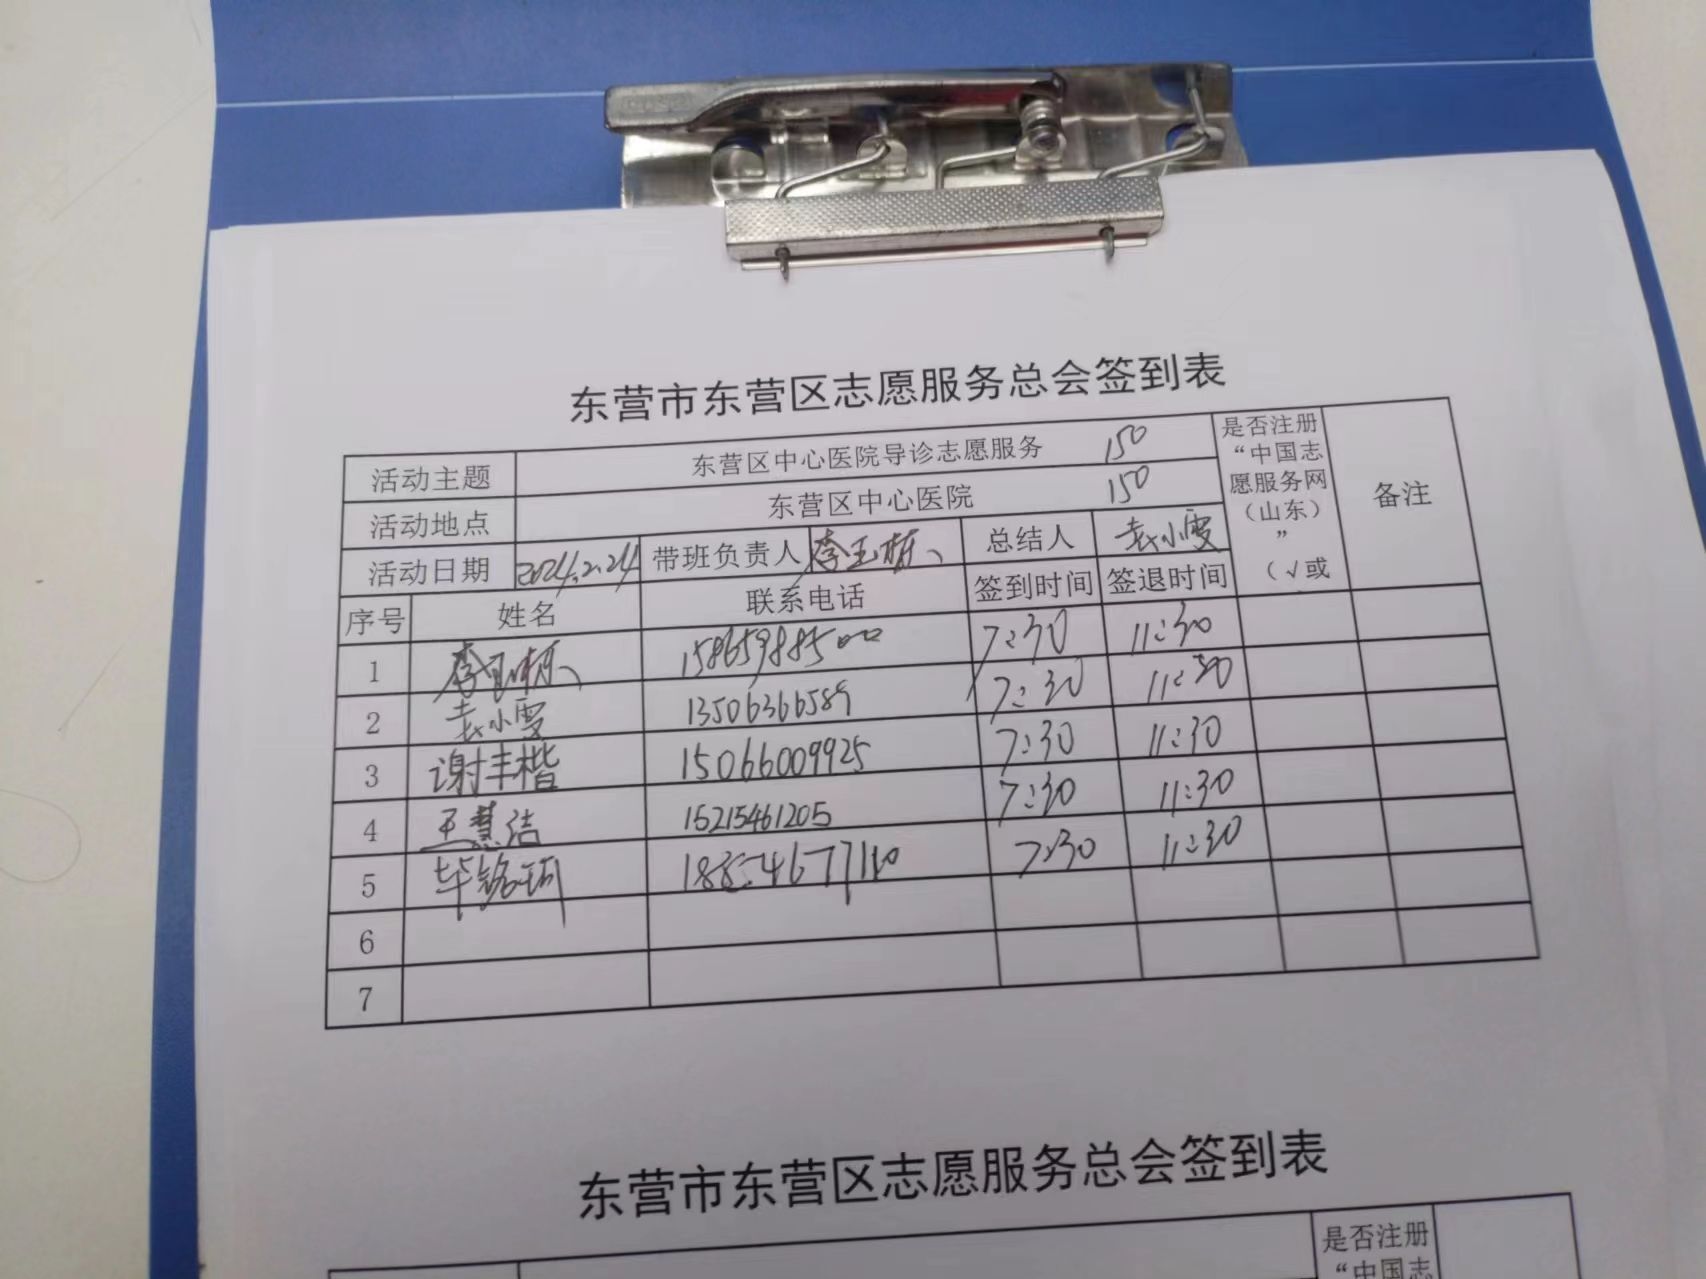 东营市东营区志愿服务总会签到表
活动主题 东营区中心医院导诊志愿服务 150
活动地点 东营区中心医院 150
活动日期 2024.2.24 带班负责人 李玉栋 总结人 袁小雯
是否注册
“中国志
愿服务网
（山东）
”
（√或
备注
序号 姓名 联系电话 签到时间 签退时间
1 李玉栋 15865988500 7:30 11:30
2 袁小雯 13506366589 7:30 11:30
3 谢丰楷 15066009925 7:30 11:30
4 王慧洁 15215461205 7:30 11:30
5 毕铭珂 7:30 11:30
6
7
东营市东营区志愿服务总会签到表
是否注册
“中国志